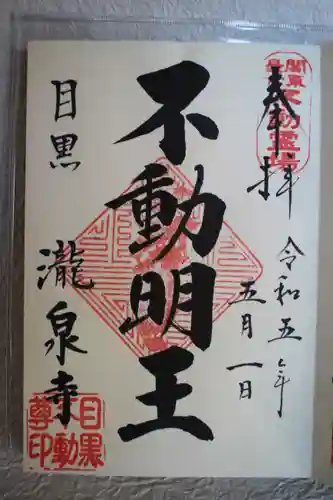 奉拝
関東最古不動霊場
令和五年
五月一日
不動明王
目黒
瀧泉寺
目黒
不動
尊印